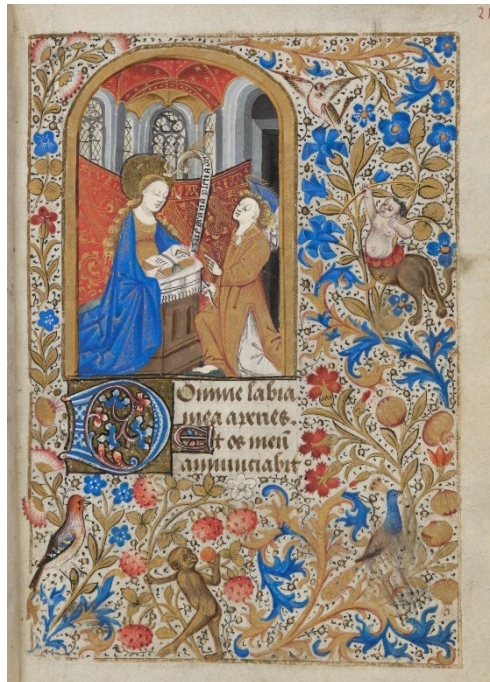 21
DOmine labia
mea aperies.
Et os meū
annunciabit